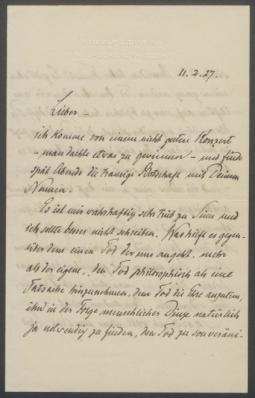 11.2.27.
Lieber –
ich komme von einem nicht guten Konzert
– man dachte etwas zu gewinnen – und finde
spät abends die traurige Botschaft mit Deinem
Namen.
Es ist mir wahrhaftig sehr trüb zu Sinn und
ich sollte besser nicht schreiben. Was hülfe es gegen-
über dem einen Tod der uns angeht. mehr
als der eigene, den Tod philosophisch als eine
Tatsache hinzunehmen, dem Tod die Ehre anzutun,
ihn in der Folge menschlicher Dinge natürlich
ja notwendig zu finden, den Tod zu